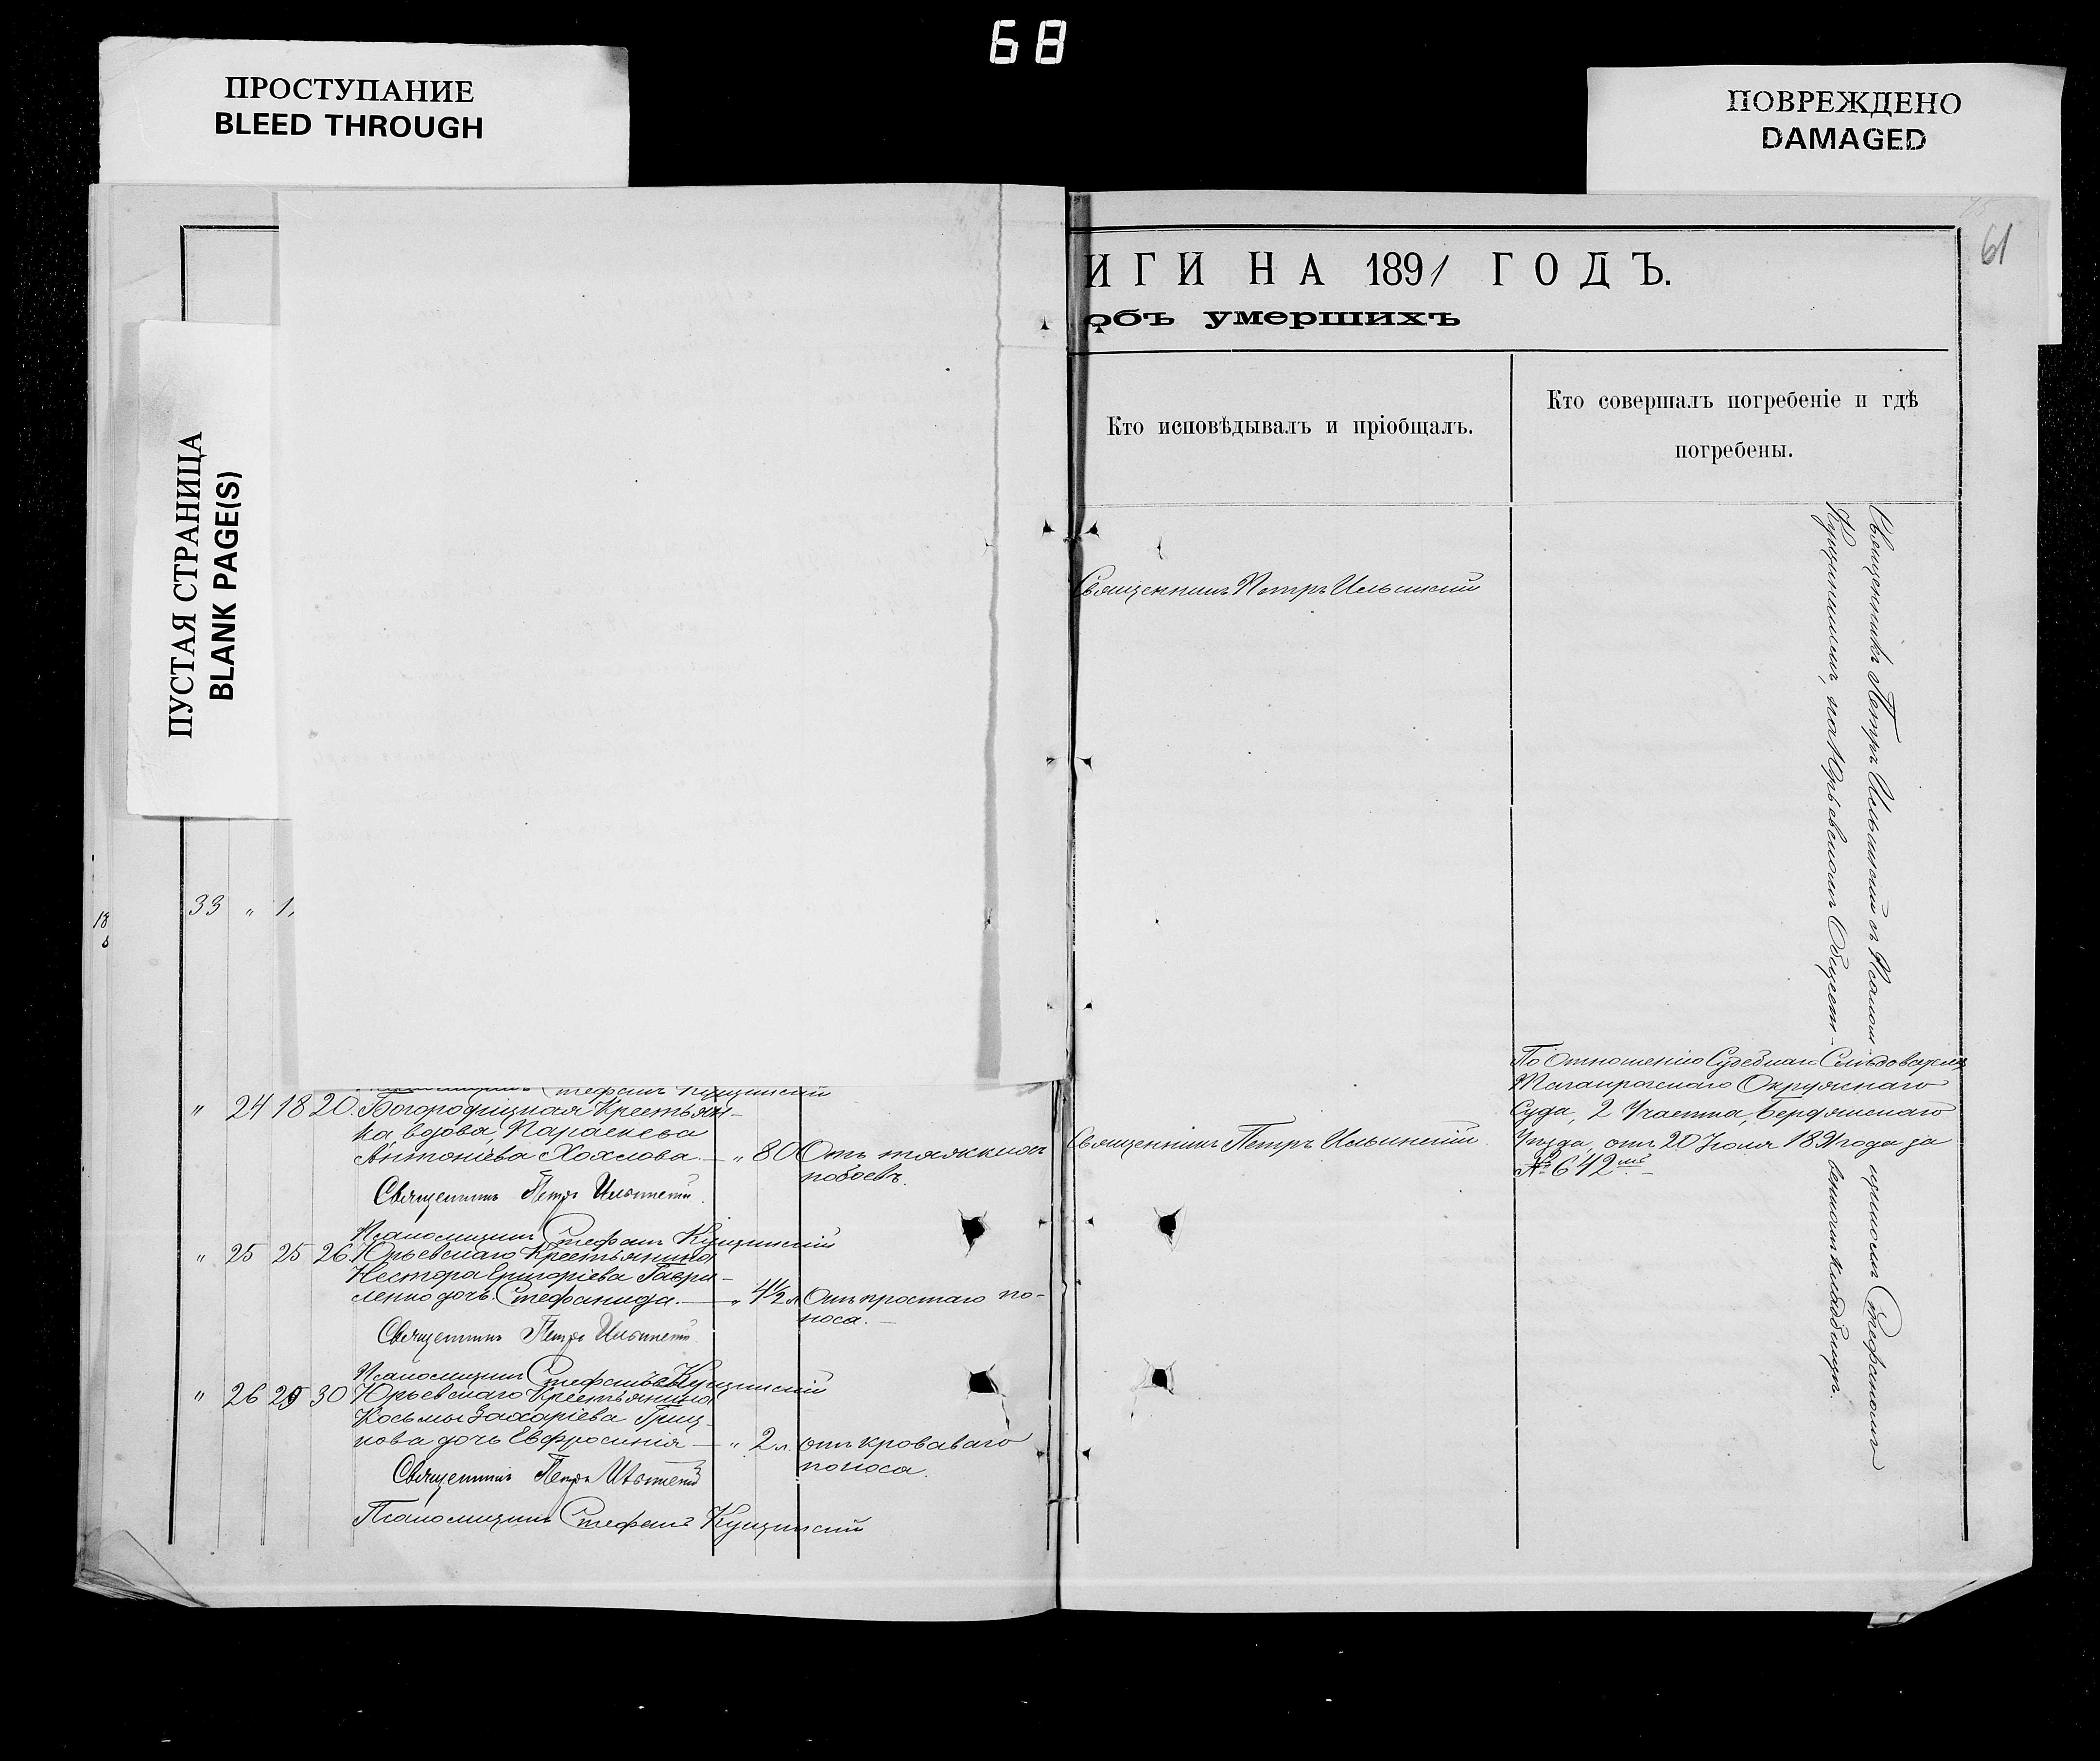 68
ПРОСТУПАНИЕ
BLEED THROUGH
ПОВРЕЖДЕНО
DAMAGED
ПУСТАЯ СТРАНИЦА
BLANK PAGE(S)
61
ИГИ НА 1891 ГОДЪ.
объ умершихъ
Кто исповѣдывалъ и пріобщалъ.
Кто совершалъ погребеніе и гдѣ
погребены.
Священникъ Петръ Ильинскій
33 " 1
18
Стефанъ Кущинскій
" 24 18 20. Богородицкая Крестьян-
ка вдова, Параскева
Антоніева Хохлова — " 80 Отъ тяжкихъ
побоевъ.
Священникъ Петръ Ильинскій
Псаломщикъ Стефанъ Кущинскій
" 25 25 26 Юрьевскаго Крестьянина
Нестора Григоріева Гаври-
ленко дочь Стефанида. — " 4½ л Отъ простаго по-
носа. —
Священникъ Петръ Ильинскій
Псаломщикъ Стефанъ Кущинскій
" 26 29 30 Юрьевскаго Крестьянина
Косьмы Захаріева Гриц-
кова дочь Евфросинія — " 2 л отъ кроваваго
поноса.
Священникъ Петръ Ильинскій
Псаломщикъ Стефанъ Кущинскій
Священникъ Петръ Ильинскій
По отношенію Судебнаго Слѣдователя
Таганрогскаго Окружнаго
Суда, 2 Участка, Бердянскаго
Уѣзда, отъ 20 Іюля 1891 года за
№ 642
Священникъ Петръ Ильинскій съ Псалом-
щикомъ Стефаномъ
Кущинскимъ, на Юрьевскомъ Общест-
венномъ кладбищѣ.